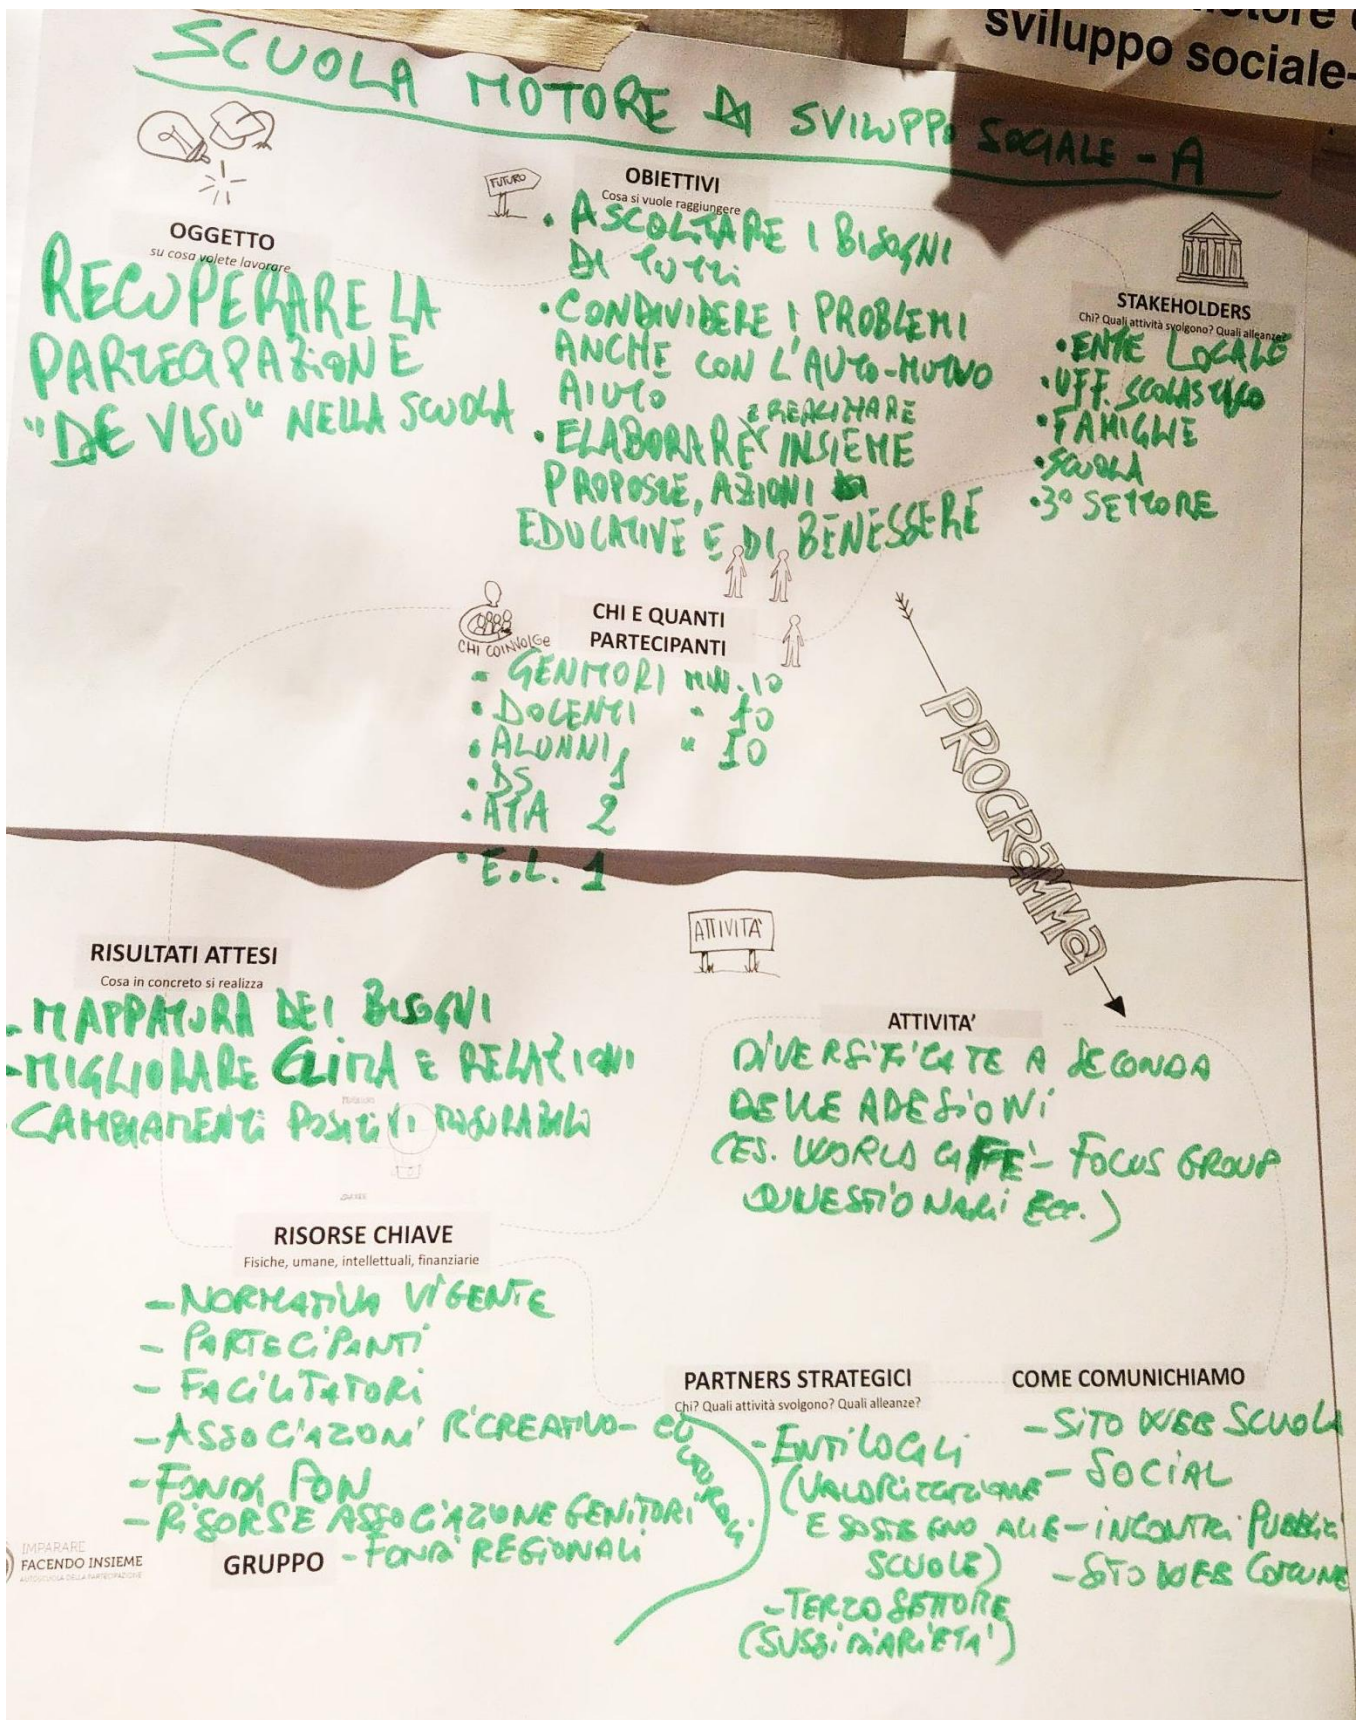 motore
sviluppo sociale-
SCUOLA MOTORE DI SVILUPPO SOCIALE - A
OGGETTO
su cosa volete lavorare
RECUPERARE LA
PARTECIPAZIONE
"DE VISU" NELLA SCUOLA
FUTURO
OBIETTIVI
Cosa si vuole raggiungere
• ASCOLTARE I BISOGNI
DI TUTTI
• CONDIVIDERE I PROBLEMI
ANCHE CON L'AUTO-MUTUO
AIUTO
E REALIZZARE
• ELABORARE INSIEME
PROPOSTE, AZIONI
EDUCATIVE E DI BENESSERE
STAKEHOLDERS
Chi? Quali attività svolgono? Quali alleanze?
• ENTE LOCALE
• UFF. SCOLASTICO
• FAMIGLIE
• SCUOLA
• 3° SETTORE
CHI COINVOLGE
CHI E QUANTI
PARTECIPANTI
- GENITORI MIN. 10
• DOCENTI " 10
• ALUNNI, " 10
• DS 1
• ATA 2
• E.L. 1
PROGRAMMA
RISULTATI ATTESI
Cosa in concreto si realizza
- MAPPATURA DEI BISOGNI
- MIGLIORARE CLIMA E RELAZIONI
CAMBIAMENTI POSITIVI MISURABILI
ATTIVITÀ
ATTIVITA'
DIVERSIFICATE A SECONDA
DELLE ADESIONI
(ES. WORLD CAFFE' - FOCUS GROUP
QUESTIONARI ECC.)
RISORSE CHIAVE
Fisiche, umane, intellettuali, finanziarie
- NORMATIVA VIGENTE
- PARTECIPANTI
- FACILITATORI
- ASSOCIAZIONI RICREATIVO-
- FONDI PON
- RISORSE ASSOCIAZIONE GENITORI
- FONDI REGIONALI
IMPARARE
FACENDO INSIEME
AUTOSCUOLA DELLA PARTECIPAZIONE
GRUPPO
PARTNERS STRATEGICI
Chi? Quali attività svolgono? Quali alleanze?
- ENTI LOCALI
(VALORIZZAZIONE
E SOSTEGNO ALLE
SCUOLE)
- TERZO SETTORE
(SUSSIDIARIETA')
COME COMUNICHIAMO
- SITO WEB SCUOLA
- SOCIAL
- INCONTRI PUBBLICI
- SITO WEB COMUNE